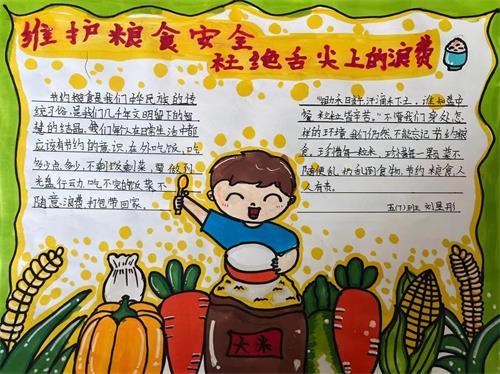 维护粮食安全
杜绝舌尖上的浪费
节约粮食是我们中华民族的传
统习俗,是我们几千年文明留下的智
慧的结晶,我们每个人在日常生活中都
应该有节约的意识,在外吃饭,吃
多少点多少,不剩饭剩菜,要做到
光盘行动,吃不完的饭菜不
随意浪费,打包带回家。
"锄禾日当午,汗滴禾下土,谁知盘中
餐,粒粒皆辛苦。"不管我们身处怎
样的环境,我们仍然不能忘记节约粮
食,珍惜每一粒米,珍惜每一颗菜不
随便乱扔乱倒食物,节约粮食人
人有责。
五(7)班
大米